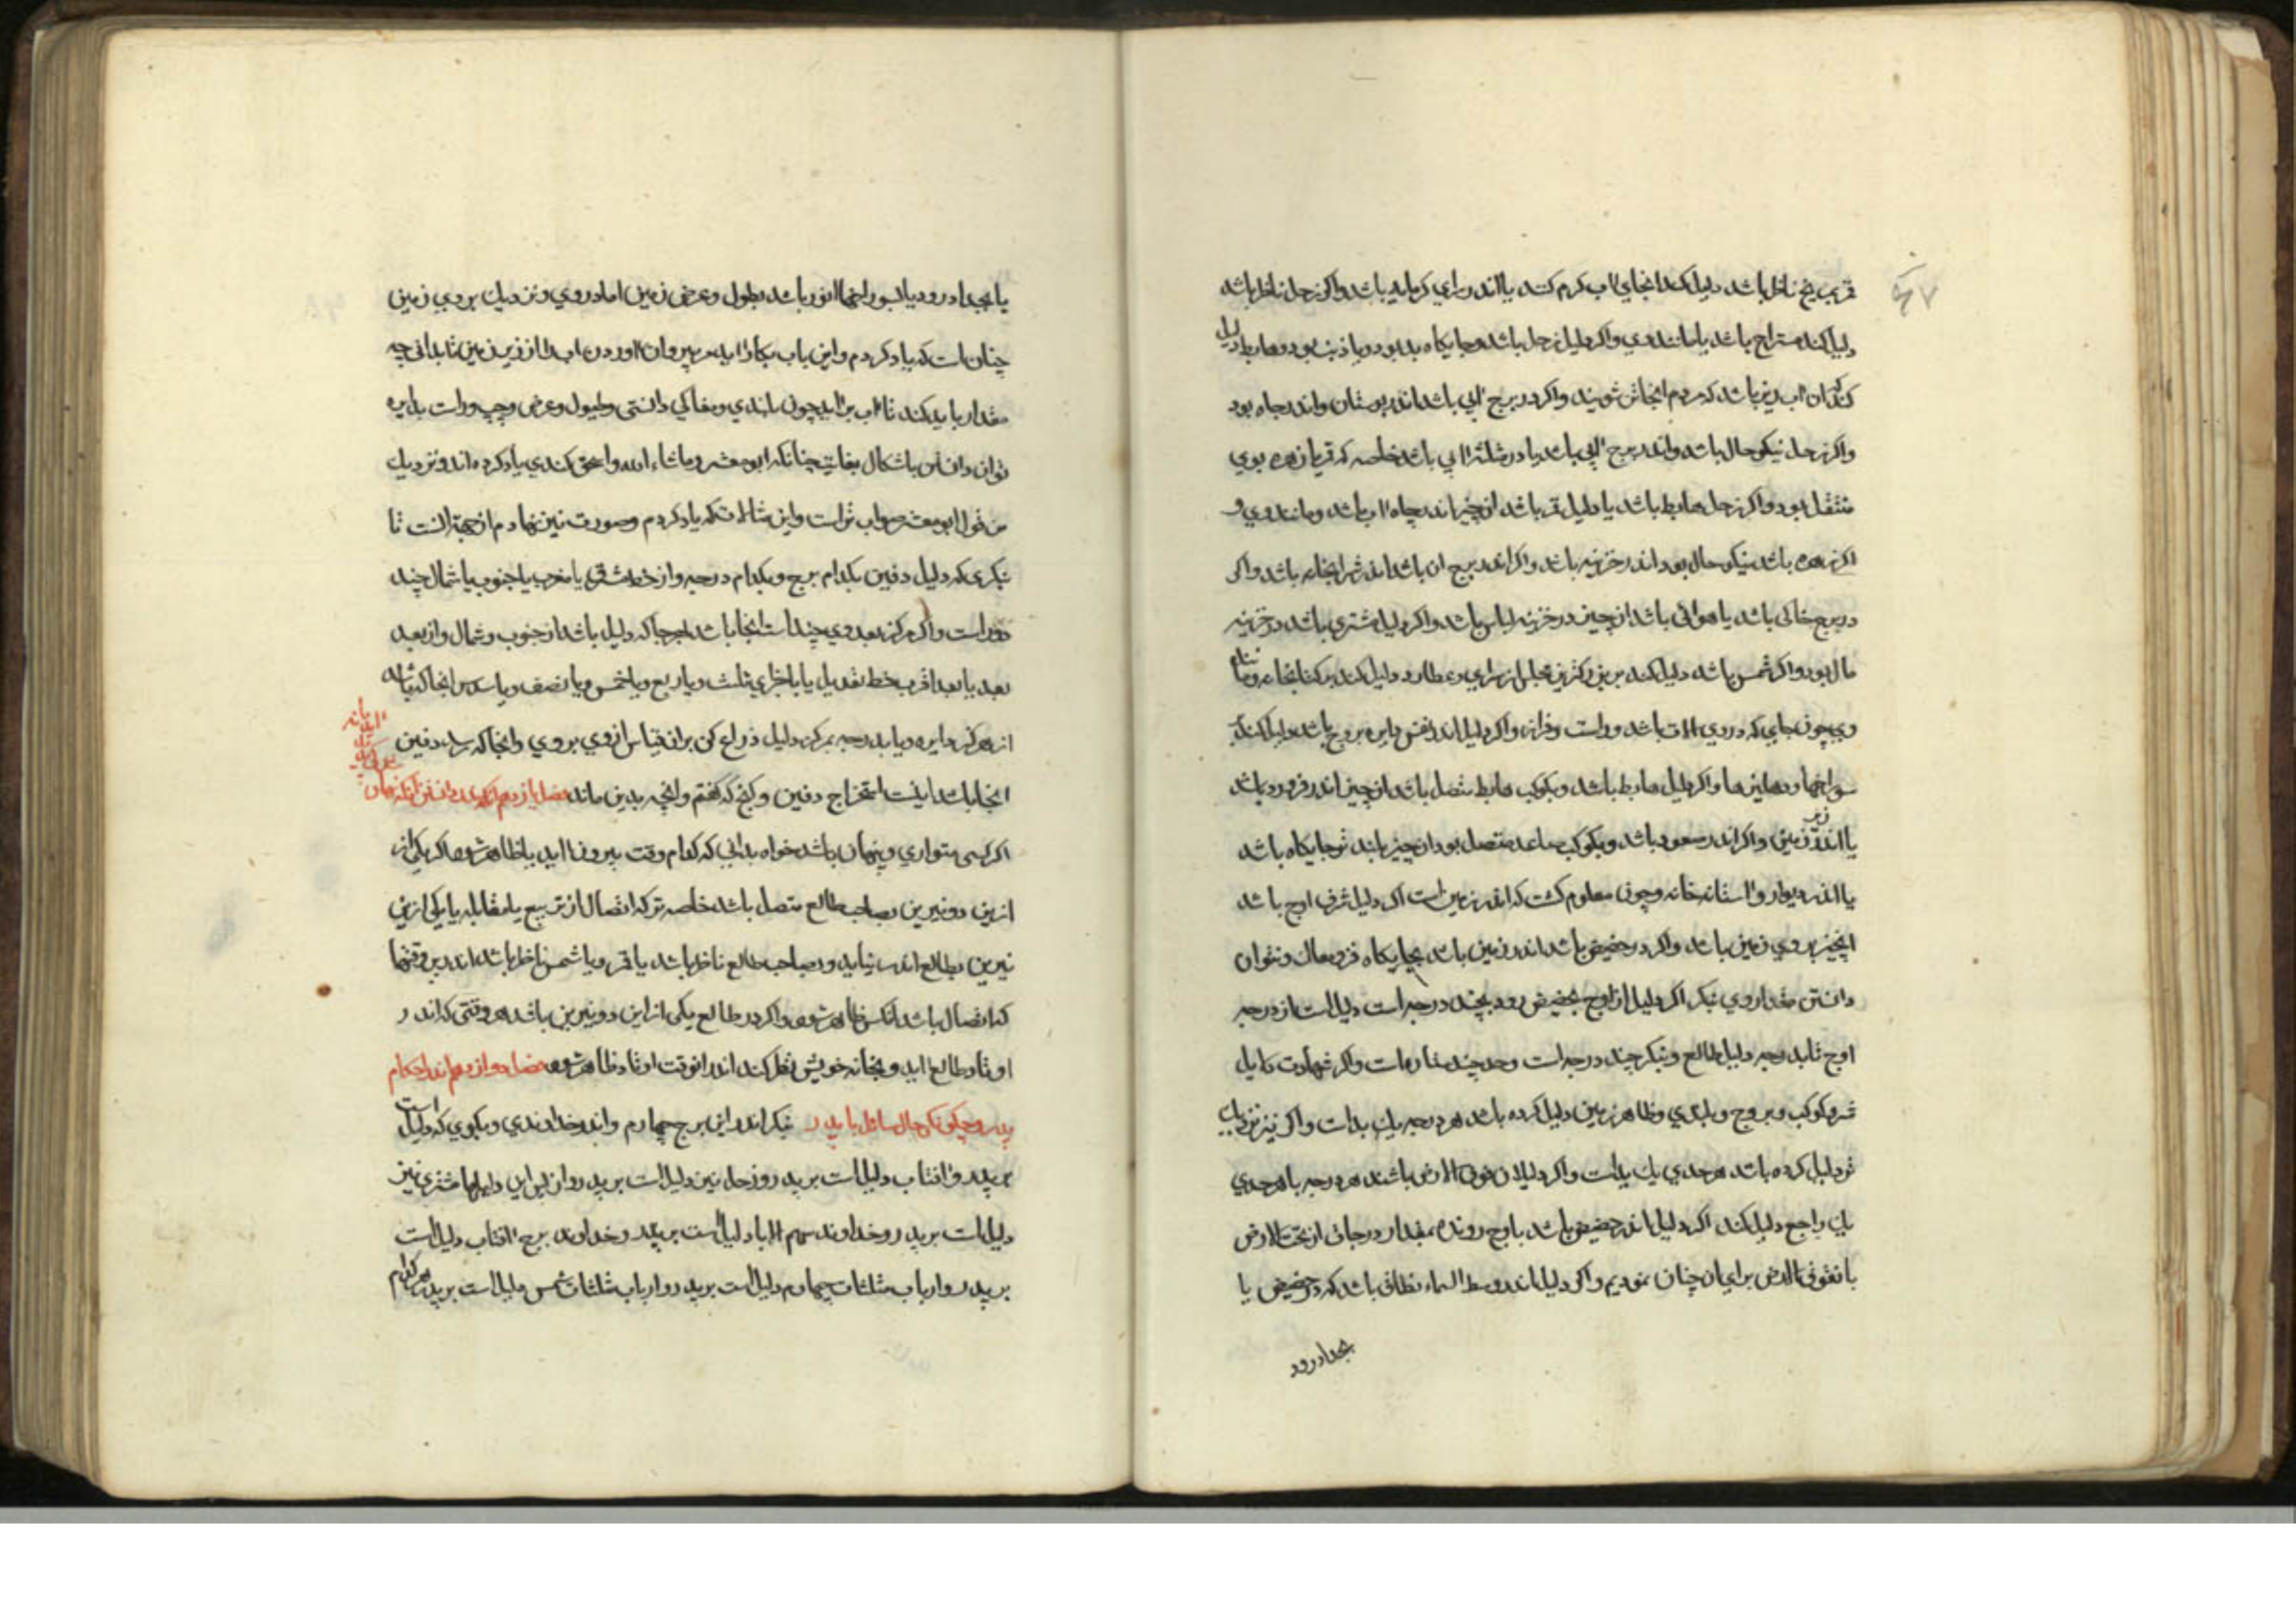 ۴۷
مریخ ناظر باشد دلیل کند انجای اب کرم کنند یا اندر سرای کرمابه باشد واکر زحل ناظر باشد
دلیل کند مستراح باشد یا مانند وی واکر دلیل زحل باشد وجایکاه بد بود ویا ذنب بود وهابط دلیل
کند که ان اب ریز باشد که مردم انجا تن شویند واکر در برج ابی باشد اندر بوستان واندر چاه بود
واکر زحل نیکو حال باشد واندر برج ابی باشد یا در مثلثه ابی باشد خاصه که قمر یا زهره بوی
متصل بود واکر زحل هابط باشد یا دلیل قمر باشد ان چیز اندر چاه اب باشد ومانند وی و
اکر زهره باشد نیکو حال بود اندر خزینه باشد واکر اندر برج ان باشد اندر شرابخانه باشد واکر
در برج خاکی باشد یا هوائی باشد ان چیز در خزینه لباس باشد واکر دلیل مشتری باشد در خزینه
مال بود واکر شمس باشد دلیل کند بر بزرکترین مجلس از سرای وعطارد دلیل کند بر کتابخانه ومانند
وی چون جای که در وی الات باشد
سوراخها ودهلیزها واکر دلیل هابط باشد وبکوکب هابط متصل باشد ان چیز اندر فرورد باشد
یا اندر زیر زمین واکر اندر صعود باشد وبکوکب صاعد متصل بود ان چیز بلند تر جایکاه باشد
یا اندر دیوار واستانه خانه وچون معلوم کشت که اندر زمین است اکر دلیل شرف اوج باشد
انچیز بروی زمین باشد واکر در حضیض باشد اندر زمین باشد بجایکاه فرومغاک ونتوان
دانستن مقدار وی بنکر اکر دلیل از اوج بحضیض رود بچند درجه است دلیل است از درجه
اوج تا بدرجه دلیل طالع وبنکر چند درجه است وحد چند ستاره است واکر شهادت دلیل
قمر وکوکب وبروج وبلندی وظاهر زمین دلیل کرده باشد هر درجه یک بدست واکر نیز نزدیک
تر دلیل کرده باشد هر حدی یک بدست واکر دلیلان فوق الارض باشند هر درجه با هر حدی
یک واجع دلیل کند اکر دلیل اندر حضیض باشد باوج رونده بمقدار درجات از تحت الارض
یا بفوق الارض برای ان چنان نمودیم واکر دلیل اندر وسط السماء نطاق باشد که در حضیض یا
بحدا درود
یا بحدا درود یا بسوراخها اندر باشد بطول وعرض زمین اما دروی ونزدیک بروی زمین
چنان است که یاد کردم واین باب بکار اید مر بیرون اوردن اب را از زیر زمین تا بدانی چه
مقدار باید کند تا اب براید چون بلندی ومغاکی دانستی وطول وعرض وچپ وراست بدایره
توان دانستن باشکال بغایت چنانکه ابو معشر وماشاء الله واسحق کندی یاد کرده اند ونزدیک
من قول ابو معشر صواب تر است واین مثالات که یاد کردم وصورت نیز نهادم از جهة انست تا
بنکری که دلیل دفین بکدام برج وبکدام درجه واز خط مشرق یا مغرب یا جنوب یا شمال چند
دور است واکر مرکز بعد وی چند است انجا باشد هر جا که دلیل باشد از جنوب وشمال واز بعد
بعد یا بعد اقرب خط تعدیل یا باجزای ثلث ویا ربع ویا خمس ویا نصف ویا سدس انجا که باشد
از مرکز دایره ویا بدرجه مرکز دلیل ذراع کن بران قیاس از وی بروی وانجا که رسد دفین
انجا باشد اینست استخراج دفین وکنج که کفتم وانچه بدین ماند فصل یازدهم اندر دانستن انکه نهان
اکر کسی متواری وپنهان باشد خواه بدانی که کدام وقت بیرون اید یا ظاهر شود اکر یکی از
ازین دو نیرین بصاحب طالع متصل باشد خاصه تر که اتصال از تربیع یا مقابله یا یکی ازین
نیرین بطالع اندر نیاید وبصاحب طالع ناظر باشد یا قمر ویا شمس ناظر باشد اندرین وقتها
که اتصال باشد انکس ظاهر شود واکر در طالع یکی از این دو نیرین باشد هر وقتی که اندر
اوتاد طالع اید وبخانه خویش نقل کند اندر انوقت اوتاد ظاهر شود فصل دوازدهم اندر احکام
پدر وچکونکی حال سائل با پدر بنکر اندر این برج چهارم واندر خداوندی وبکوی که دلیل است
بر پدر وافتاب دلیل است بر پدر وزحل نیز دلیل است بر پدر واز پس این دلیلها مشتری نیز
دلیل است بر پدر وخداوند سهم الاباء دلیل است بر پدر وخداوند برج افتاب دلیل است
بر پدر وارباب مثلثات چهارم دلیل است بر پدر وارباب مثلثات شمس دلیل است بر پدر هر کدام